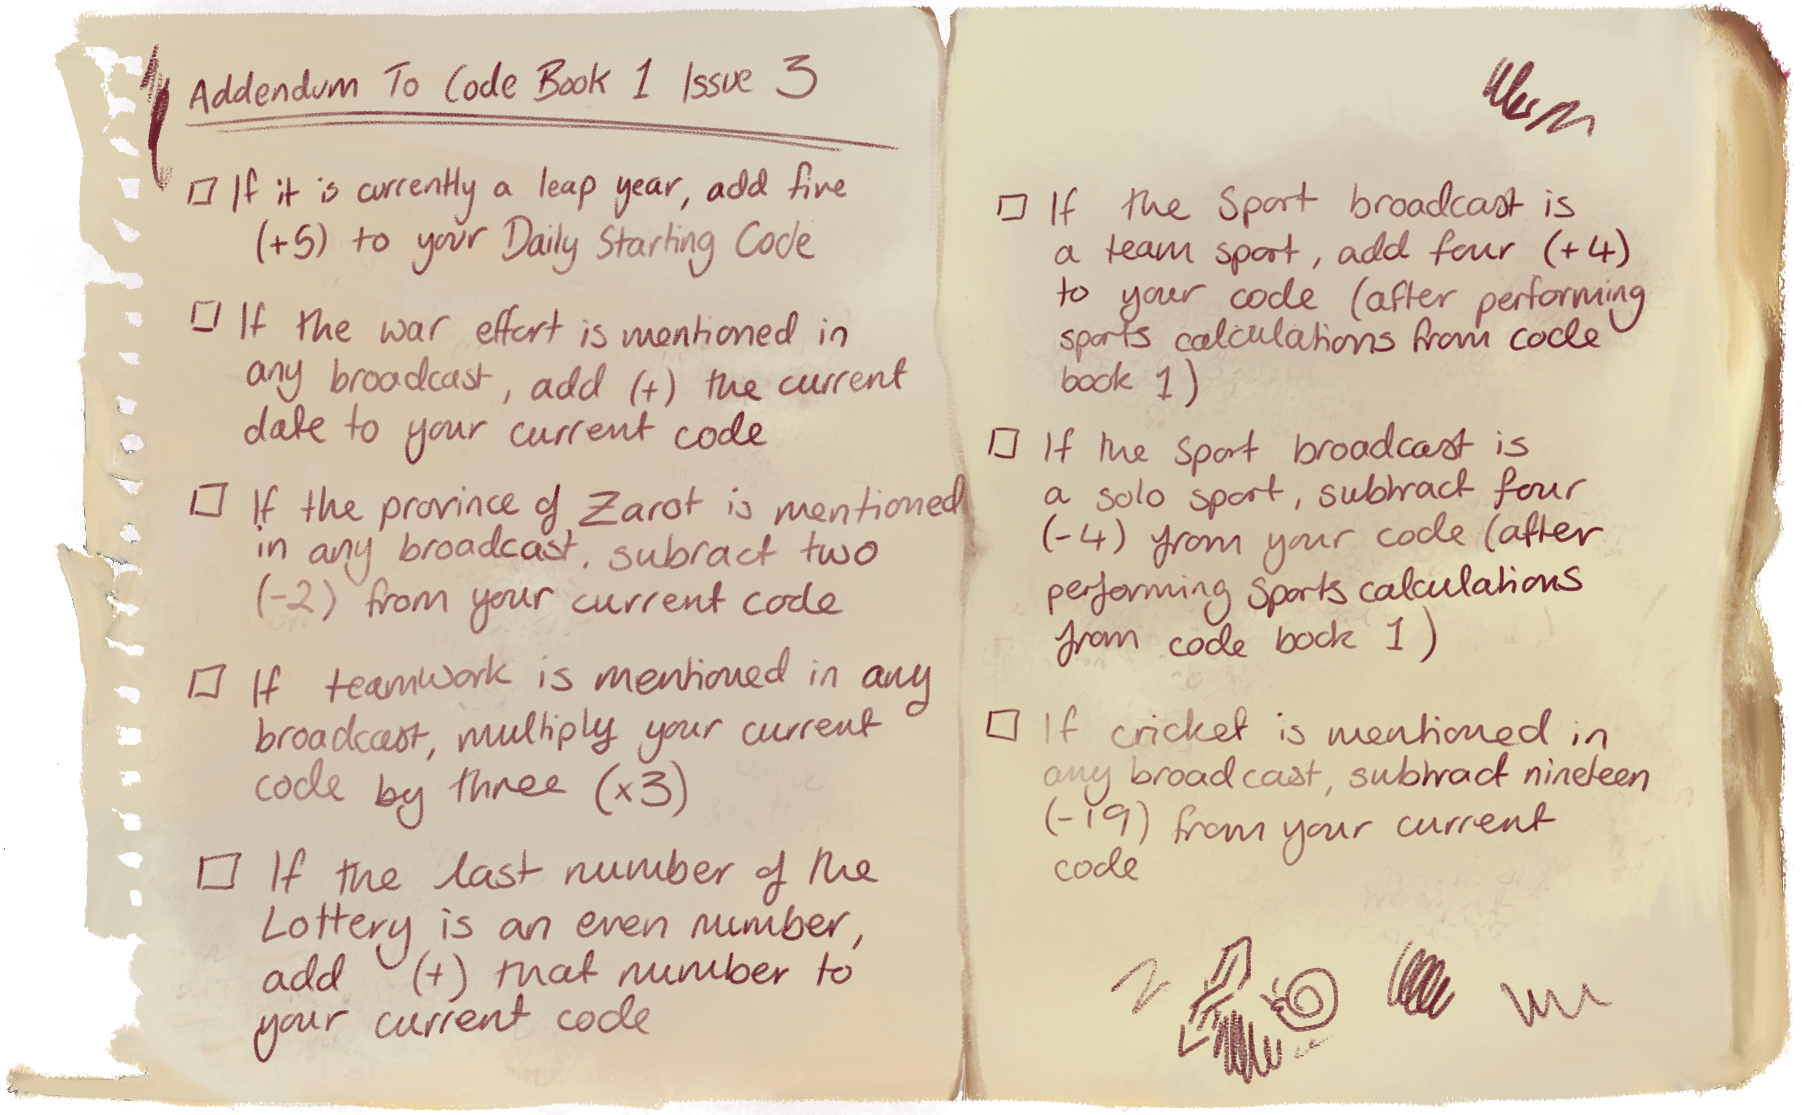 Addendum To Code Book 1 Issue 3
If it is currently a leap year, add five
(+5) to your Daily Starting Code
If the war effort is mentioned in
any broadcast, add (+) the current
date to your current code
If the province of Zarot is mentioned
in any broadcast, subract two
(-2) from your current code
If teamwork is mentioned in any
broadcast, multiply your current
code by three (x3)
If the last number of the
Lottery is an even number,
add (+) that number to
your current code
If the Sport broadcast is
a team sport, add four (+4)
to your code (after performing
sports calculations from code
book 1)
If the Sport broadcast is
a solo sport, subtract four
(-4) from your code (after
performing Sports calculations
from code book 1)
If cricket is mentioned in
any broadcast, subtract nineteen
(-19) from your current
code